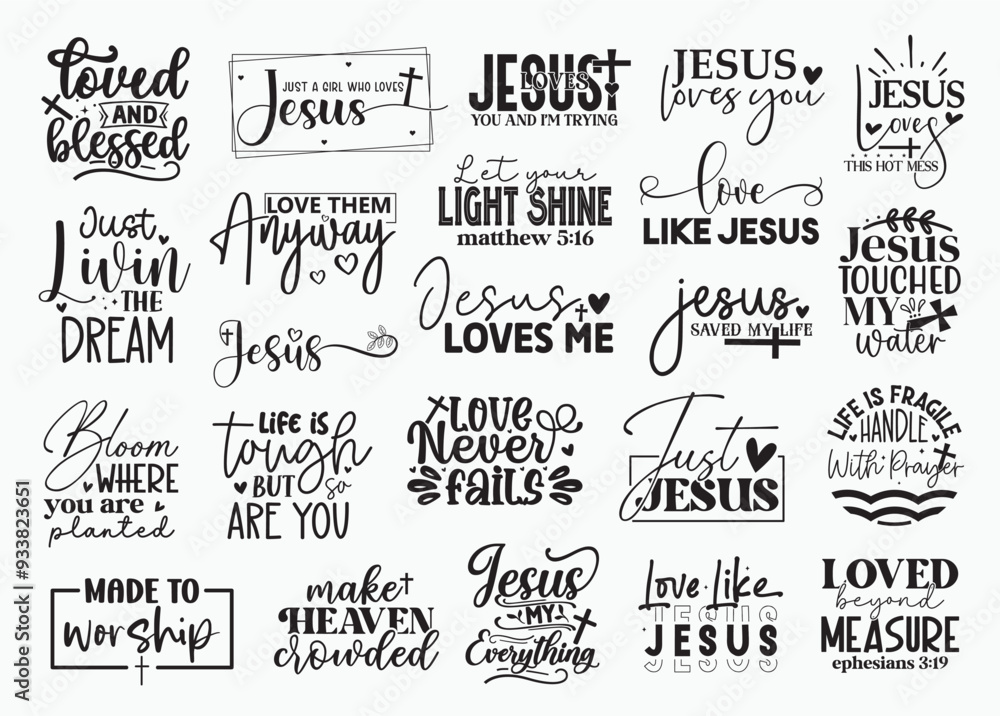 Loved
AND
blessed
JUST A GIRL WHO LOVES
Jesus
JESUS
LOVES
YOU AND I'M TRYING
JESUS
loves you
JESUS
Loves
THIS HOT MESS
Just
Livin
THE
DREAM
LOVE THEM
Anyway
Let your
LIGHT SHINE
matthew 5:16
love
LIKE JESUS
Jesus
TOUCHED
MY
water
Jesus
Jesus
LOVES ME
jesus
SAVED MY LIFE
Bloom
WHERE
you are
planted
LIFE IS
tough
BUT so
ARE YOU
LOVE
Never
fails
Just
JESUS
LIFE IS FRAGILE
HANDLE
With Prayer
MADE TO
worship
make
HEAVEN
crowded
Jesus
MY
Everything
Love Like
JESUS
JESUS
JESUS
LOVED
beyond
MEASURE
ephesians 3:19
Adobe Stock | #933823651